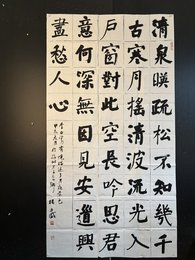 清泉暎疏松不知幾千
古寒月搖清波流光入
戶窗對此空長吟思君
意何深無因見安道興
盡愁人心